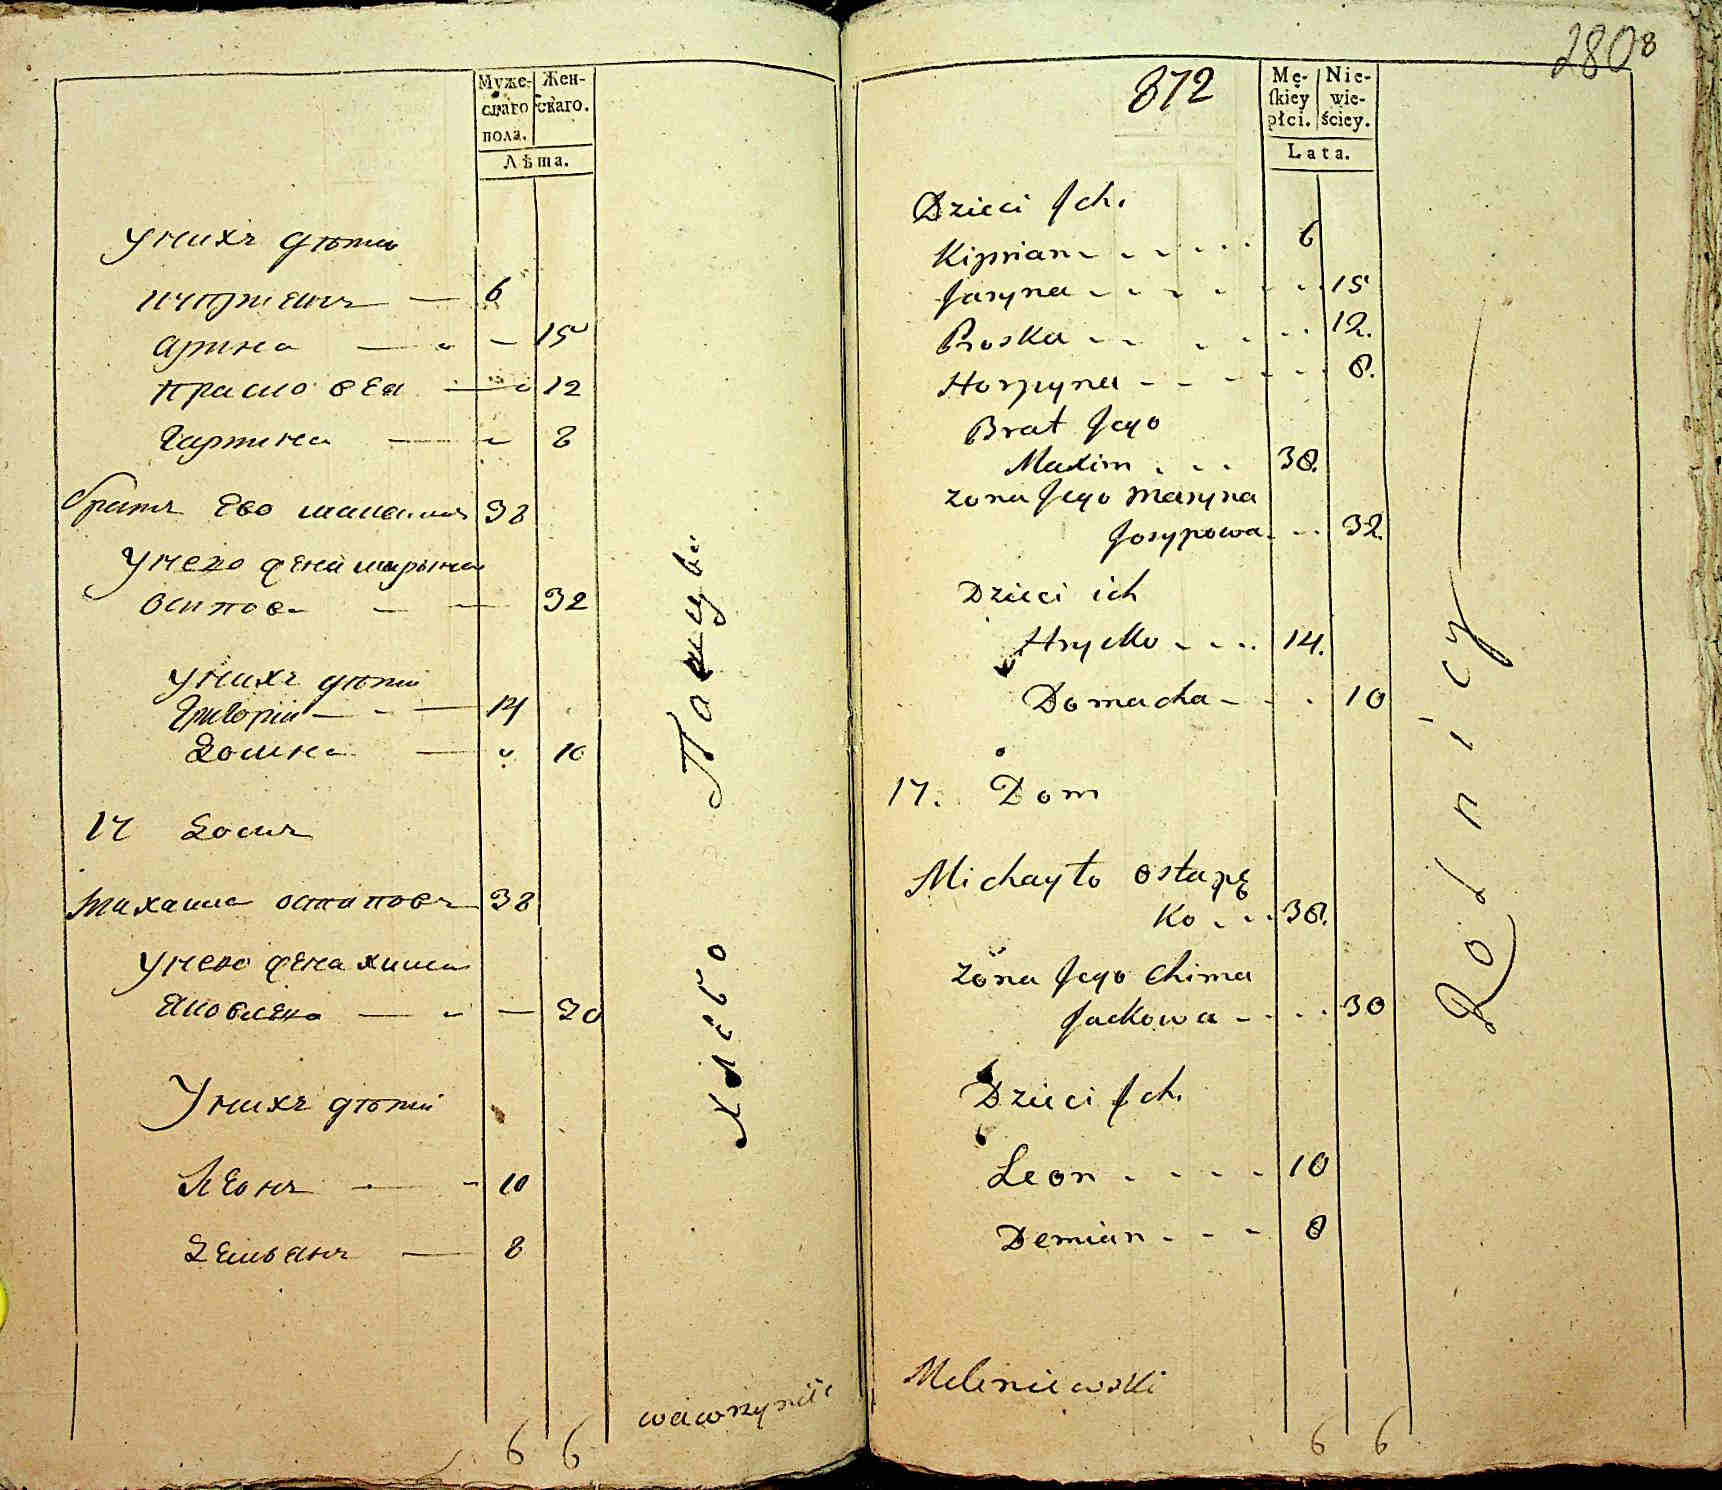 Муже-
скаго
пола.
Жен-
скаго.
Лѣта.
У нихъ дѣти
Киприянъ 6
Арина 15
Прасковея 12
Гарпина 8
братъ Его максимъ 38
У него жена марына
Осипова 32
У нихъ дѣти
Григорий 14
Домна 10
17 Домъ
Михаила остаповъ 38
У него жена хима
Яковлева 30
У нихъ дѣти
Леонъ 10
Демьянъ 8
Хлебо Пашцы
wawrzyniec
6 6
2808
872
Mę-
skiey
płci.
Nie-
wie-
ściey.
Lata.
Dzieci Jch.
Kiprian 6
Jaryna 15
Proska 12.
Horpyna 8.
Brat Jego
Maxim 38.
zona Jego Maryna
Josypowa 32.
Dzieci ich
Hrycko 14.
Domacha 10
17. Dom
Michayło ostapę
Ko 38.
zona Jego Chima
Jackowa 30
Dzieci Jch.
Leon 10
Demian 8
Rolnicy
Meleniewski
6 6